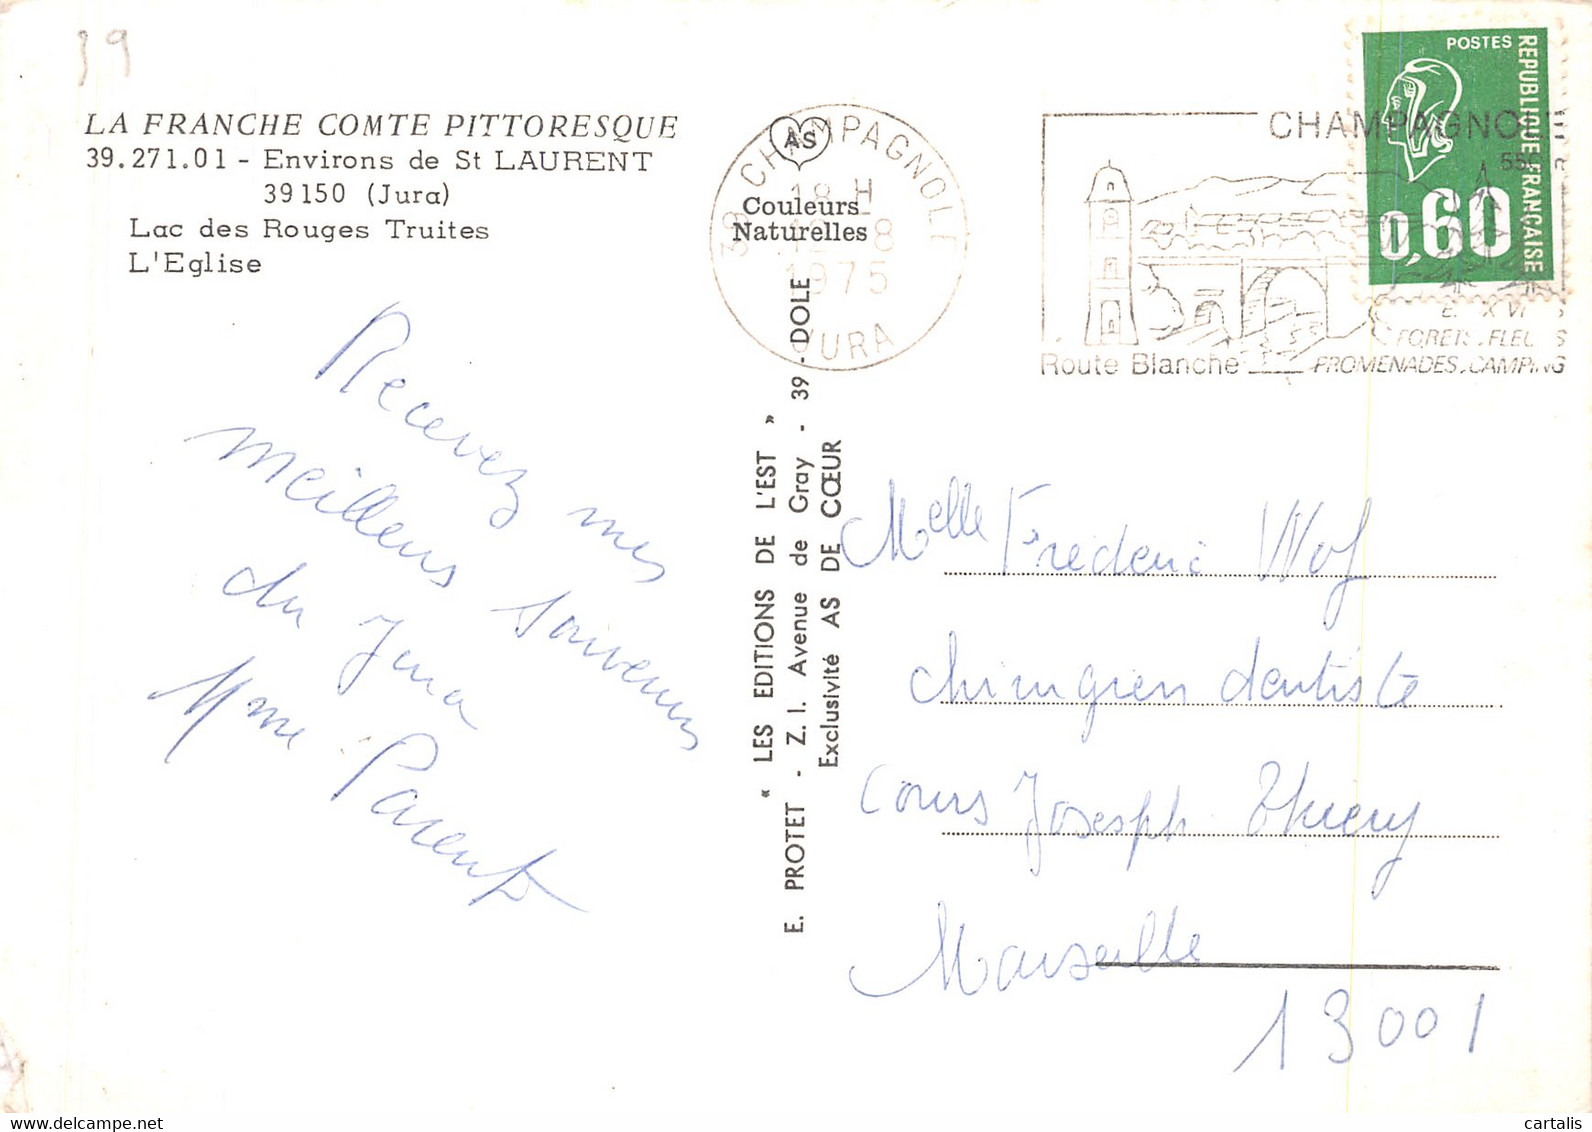 39
LA FRANCHE COMTE PITTORESQUE
39.271.01 - Environs de St LAURENT
39150 (Jura)
Lac des Rouges Truites
L'Eglise
Recevez mes
meilleurs souvenirs
du Jura
Mme Parent
AS
Couleurs
Naturelles
CHAMPAGNOLE
18 H
8
1975
JURA
« LES EDITIONS DE L'EST »
E. PROTET - Z. I. Avenue de Gray - 39 - DOLE
Exclusivité AS DE CŒUR
CHAMPAGNOLE
Route Blanche
FORETS.FLEURS
PROMENADES.CAMPING
POSTES
REPUBLIQUE FRANÇAISE
0,60
Melle Frédéric
chirurgien dentiste
Cours Joseph Thierry
Marseille
13001
cartalis
www.delcampe.net